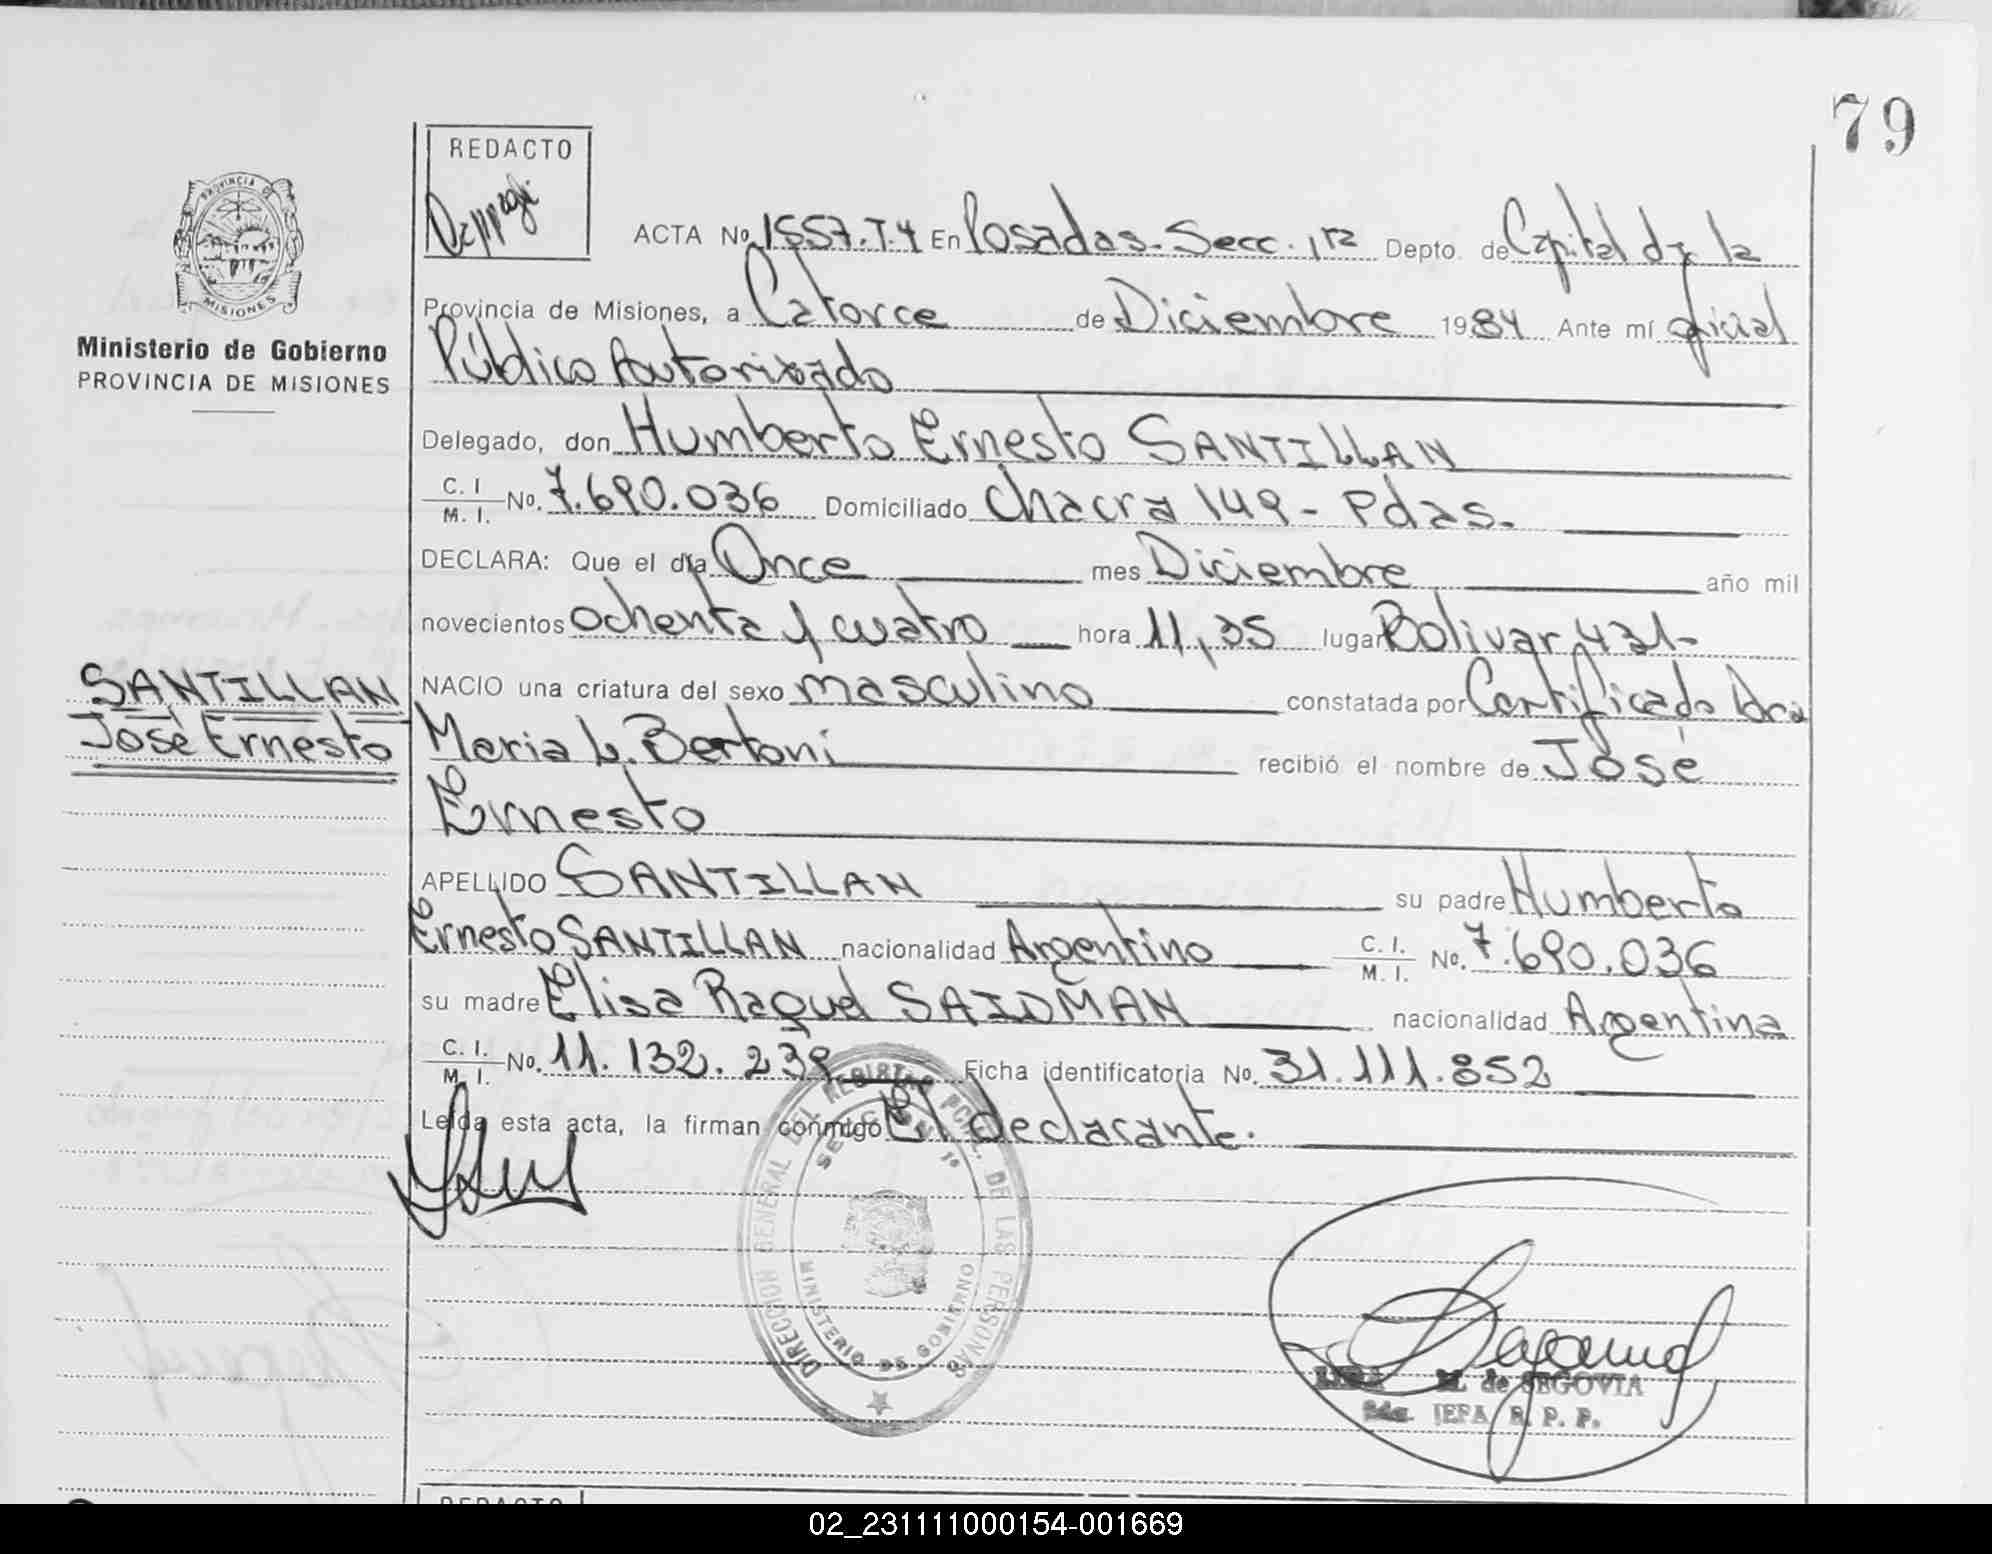 79
REDACTO
PROVINCIA DE
MISIONES
Ministerio de Gobierno
PROVINCIA DE MISIONES
ACTA No. 1557.T.4 En Posadas. Secc. 1ra Depto. de Capital de la
Provincia de Misiones, a Catorce de Diciembre 1984 Ante mí oficial
Público Autorizado
Delegado, don Humberto Ernesto SANTILLAN
C. I. M. I. No. 7.690.036 Domiciliado Chacra 149 - Pdas.
DECLARA: Que el día Once mes Diciembre año mil
novecientos ochenta y cuatro hora 11,35 lugar Bolivar 431-
SANTILLAN
José Ernesto
NACIO una criatura del sexo masculino constatada por Certificado Dra
Maria L. Bertoni recibió el nombre de José
Ernesto
APELLIDO SANTILLAN su padre Humberto
Ernesto SANTILLAN nacionalidad Argentino C. I. M. I. No. 7.690.036
su madre Elisa Raquel SAIDMAN nacionalidad Argentina
C. I. M. I. No. 11.132.239 Ficha identificatoria No. 31.111.852
Leída esta acta, la firman conmigo El declarante.
DIRECCION GENERAL DEL REGISTRO PCIAL. DE LAS PERSONAS
SECCION 1º
MINISTERIO DE GOBIERNO
M. de SEGOVIA
R. P. P.
REDACTO
02_231111000154-001669